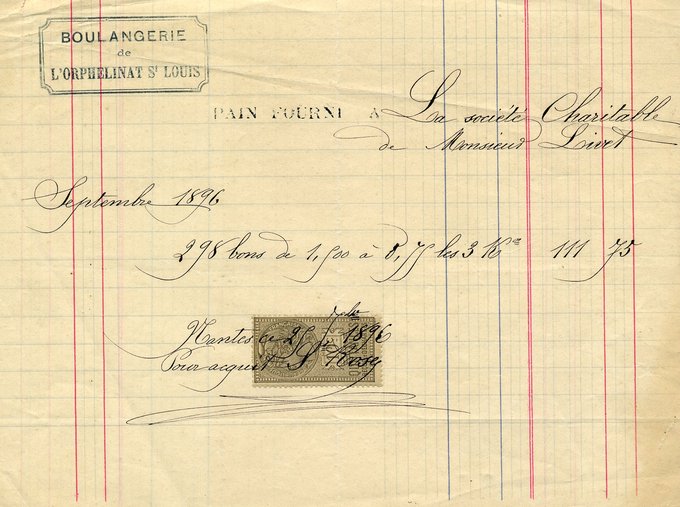 BOULANGERIE
de
L'ORPHELINAT St LOUIS
PAIN FOURNI A La société Charitable
de Monsieur Livet
Septembre 1896
298 bons de 1,500 à 0,75 les 3 Kos 111 75
Nantes ce 25 7bre 1896
Pour acquit S Rose